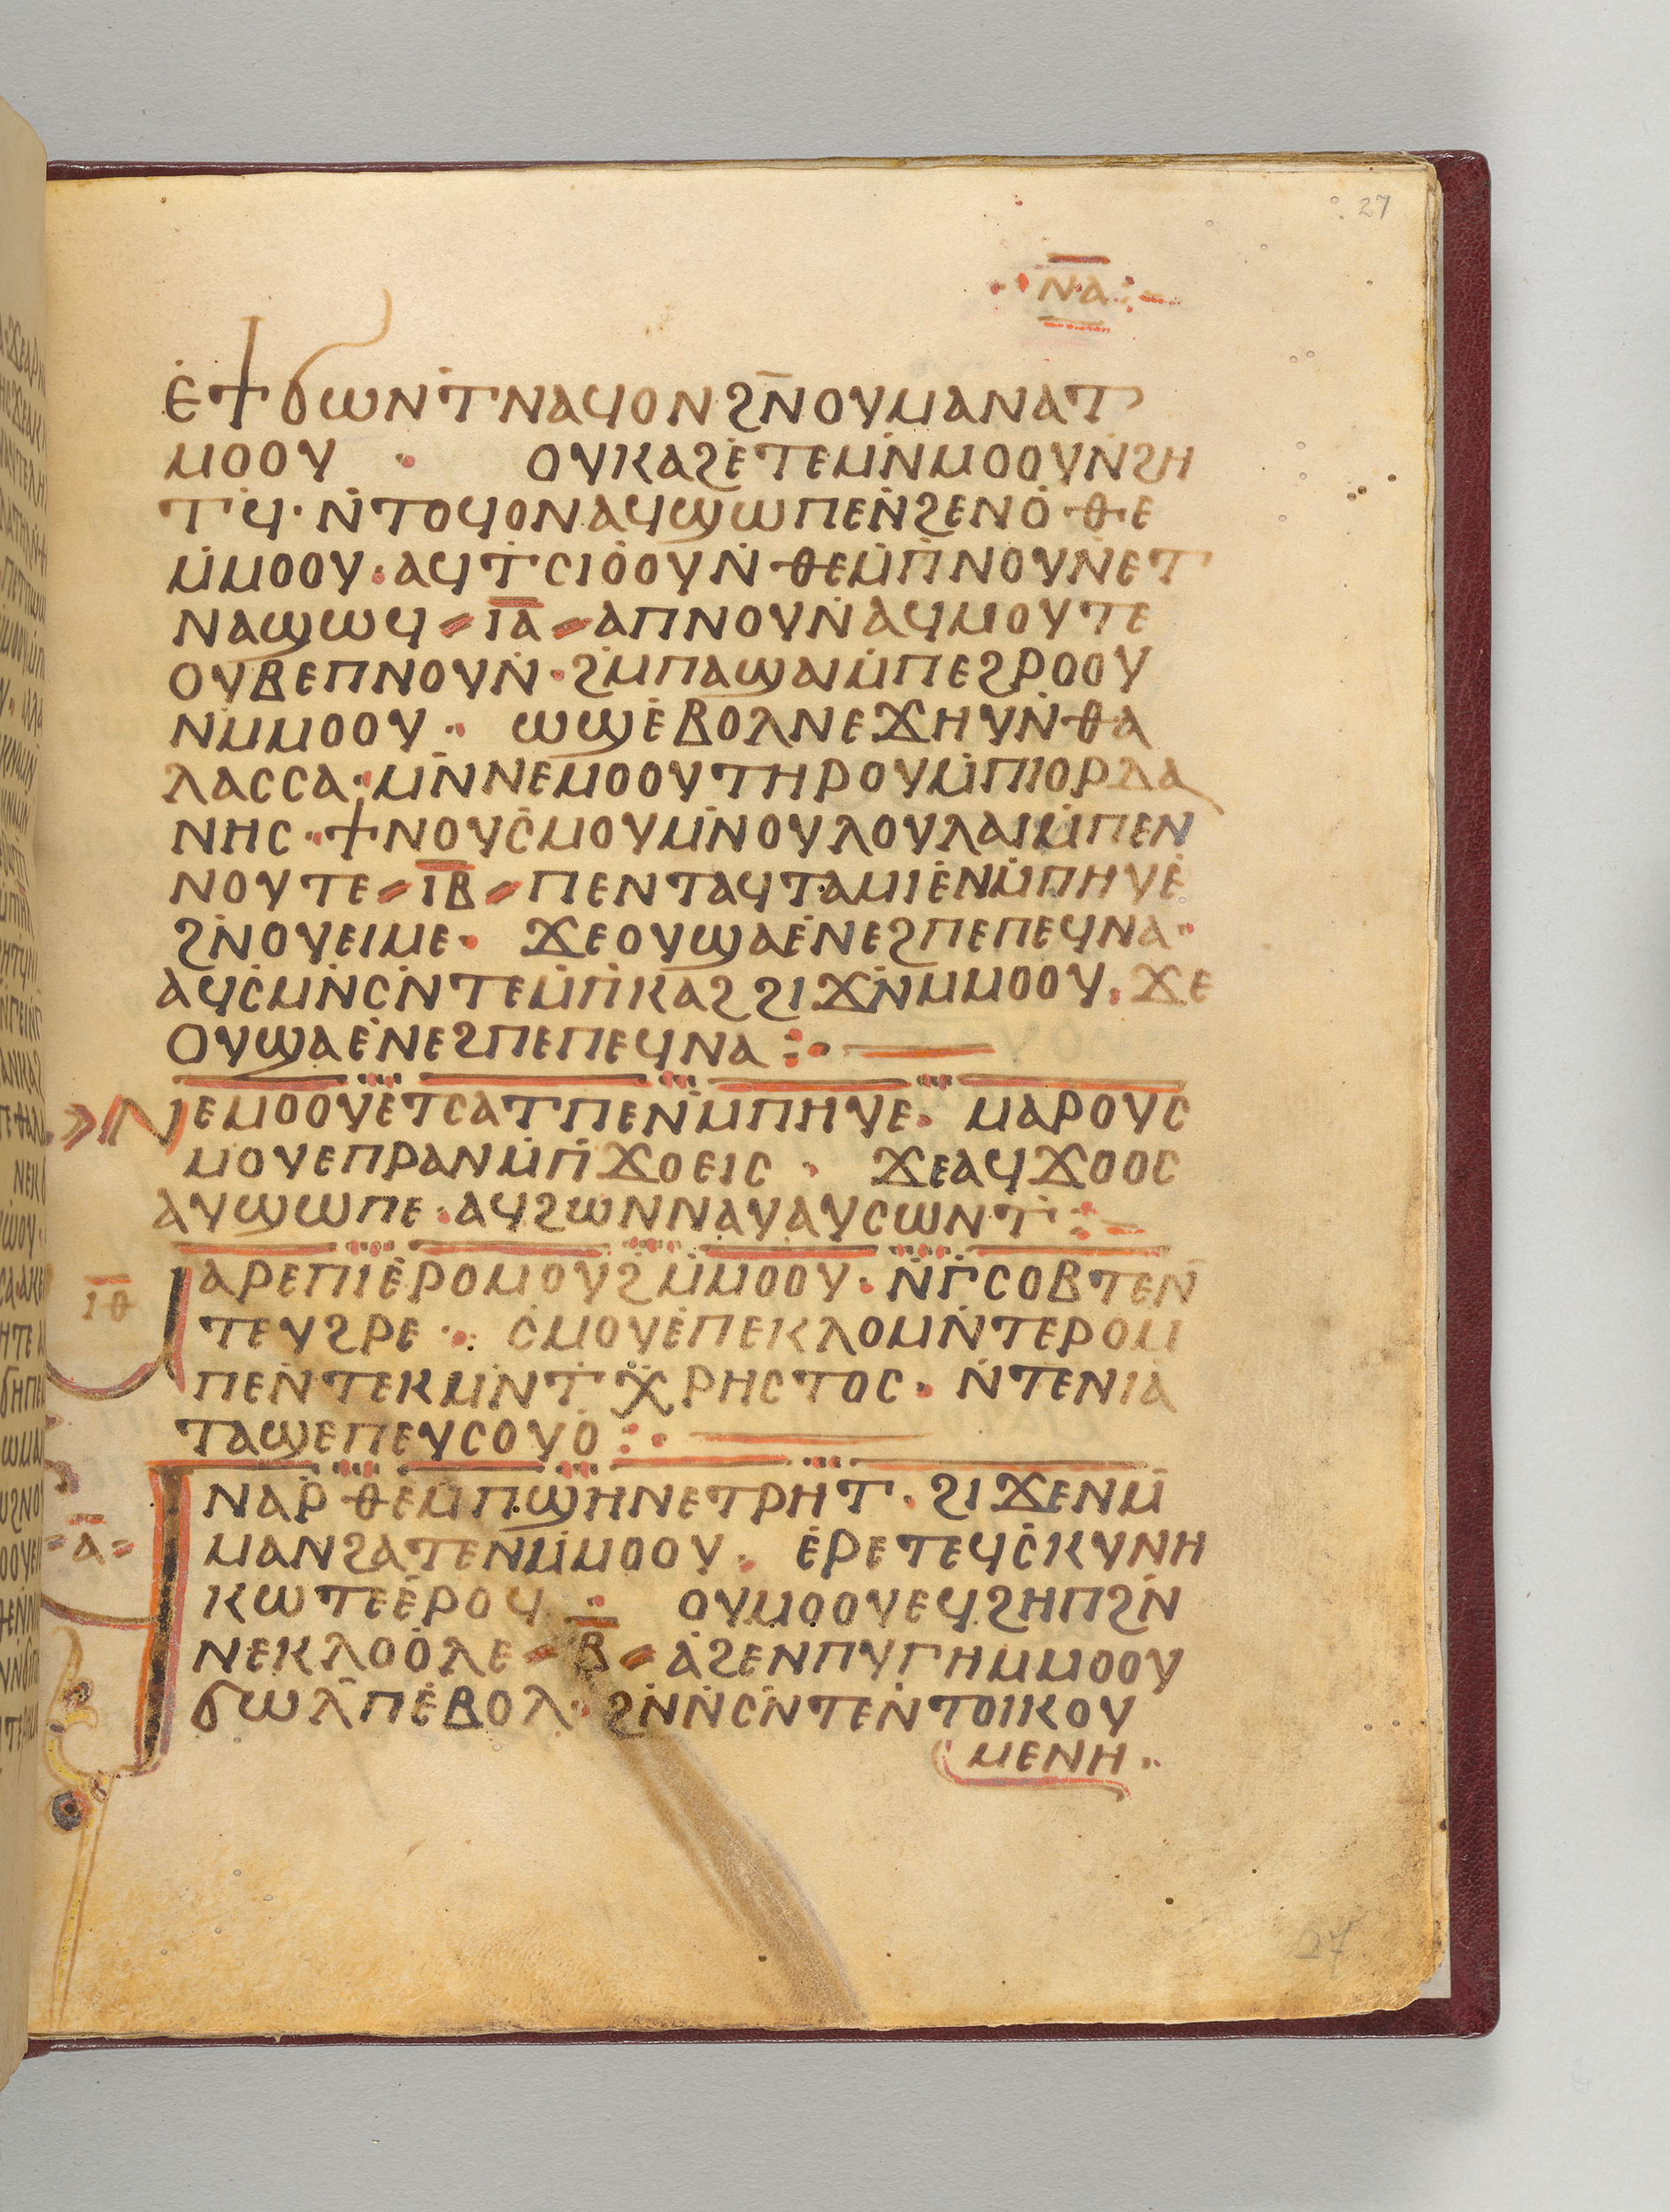 27
ⲛⲁ
ⲉϯϭⲱⲛⲧ ⲛⲁϥ ⲟⲛ ϩⲛ̄ ⲟⲩⲙⲁ ⲛⲁⲧ
ⲙⲟⲟⲩ · ⲟⲩⲕⲁϩ ⲉⲧⲉ ⲙ̇ⲛ ⲙⲟⲟⲩ ⲛ̇ϩⲏ
ⲧϥ̇ · ⲛ̇ⲧⲟϥ ⲟⲛ ⲁϥϣⲱⲡⲉ ⲛ̇ϩⲉⲛⲟ̇ ⲑⲉ
ⲙ̇ⲙⲟⲟⲩ · ⲁϥⲧ̇ⲥⲓⲟ̇ⲟⲩ ⲛ̇ⲑⲉ ⲙ̇ⲡ̄ⲛⲟⲩⲛ ⲉⲧ
ⲛⲁϣⲱϥ ⲓ̅ⲁ̅ ⲁⲡⲛⲟⲩⲛ̇ ⲁϥⲙⲟⲩⲧⲉ
ⲟⲩⲃⲉ ⲡⲛⲟⲩⲛ̇ · ϩ̇ⲙ ⲡⲁϣⲁⲓ ⲙ̇ⲡⲉϩⲣⲟⲟⲩ
ⲛ̇ⲙⲙⲟⲟⲩ · ⲱϣ ⲉ̇ⲃⲟⲗ ⲛⲉϫⲏⲩ ⲛ̇ⲑⲁ
ⲗⲁⲥⲥⲁ · ⲙⲛ̄ ⲛⲉⲙⲟⲟⲩ ⲧⲏⲣⲟⲩ ⲙ̇ⲡⲓⲟⲣⲇⲁ
ⲛⲏⲥ · ϯⲛⲟⲩ ⲥ̇ⲙⲟⲩ ⲙ̇ⲛ ⲟⲩⲗⲟⲩⲗⲁⲓ ⲙ̇ⲡⲉⲛ
ⲛⲟⲩⲧⲉ ⲓ̅ⲃ̅ ⲡⲉⲛⲧⲁϥⲧⲁⲙⲓⲉ̇ ⲛⲙ̇ⲡⲏⲩⲉ̇
ϩⲛ̇ ⲟⲩⲉⲓⲙⲉ · ϫⲉ ⲟⲩϣⲁⲉ̇ⲛⲉϩ ⲡⲉ ⲡⲉϥⲛⲁ ·
ⲁϥⲥ̇ⲙⲛ̇ ⲥⲛ̇ⲧⲉ ⲙ̇ⲡ̇ⲕⲁϩ ϩⲓϫⲛ̇ ⲙⲙⲟⲟⲩ · ϫⲉ
ⲟⲩϣⲁⲉ̇ⲛⲉϩ ⲡⲉ ⲡⲉϥⲛⲁ :·
ⲛⲉⲙⲟⲟⲩ ⲉ̇ⲧⲥⲁⲧⲡⲉ ⲛ̇ⲙⲡⲏⲩⲉ · ⲙⲁⲣⲟⲩⲥ
ⲙⲟⲩ ⲉⲡⲣⲁⲛ ⲙ̇ⲡ̇ϫⲟⲉⲓⲥ · ϫⲉ ⲁϥϫⲟⲟⲥ
ⲁⲩϣⲱⲡⲉ · ⲁϥϩⲱⲛ ⲛⲁⲩ ⲁⲩⲥⲱⲛⲧ̇ :
ⲓ̅ⲑ̅
ⲙⲁⲣⲉ ⲡⲓⲉ̇ⲣⲟ ⲙⲟⲩϩ ⲙ̇ⲙⲟⲟⲩ · ⲛ̇ⲅ̇ⲥⲟⲃⲧⲉ ⲛ̄
ⲧⲉⲩϩⲣⲉ · ⲥ̇ⲙⲟⲩ ⲉ̇ⲡⲉⲕⲗⲟⲙ ⲛ̇ⲧⲉⲣⲟⲙ
ⲡⲉ ⲛ̇ⲧⲉⲕⲙⲛ̇ⲧⲭ̈ⲣⲏⲥⲧⲟⲥ · ⲛ̇ⲧⲉ ⲛⲓⲁ
ⲧⲁϣⲉ ⲡⲉⲩⲥⲟⲩⲟ̇ :·
ⲁ̅
ϥⲛⲁⲣ̇ⲑⲉ ⲙ̇ⲡϣⲏⲛ ⲉⲧⲣⲏⲧ · ϩⲓϫⲉⲛ ⲙ̄
ⲙⲁⲛϩⲁⲧⲉ ⲛⲙ̇ⲙⲟⲟⲩ · ⲉ̇ⲣⲉ ⲧⲉϥⲥ̇ⲕⲩⲛⲏ
ⲕⲱⲧⲉ ⲉ̇ⲣⲟϥ · ⲟⲩⲙⲟⲟⲩ ⲉϥϩⲏⲡ ϩⲛ̄
ⲛⲉⲕⲗⲟⲟ̇ⲗⲉ ⲃ̅ ⲁ̇ϩⲉⲛⲡⲩⲅⲏ ⲙⲙⲟⲟⲩ
ϭⲱⲗⲡ̄ ⲉ̇ⲃⲟⲗ · ϩⲛ̇ ⲛ̇ⲥⲛ̇ⲧⲉ ⲛ̇ⲧⲟⲓⲕⲟⲩ
ⲙⲉⲛⲏ ·
27